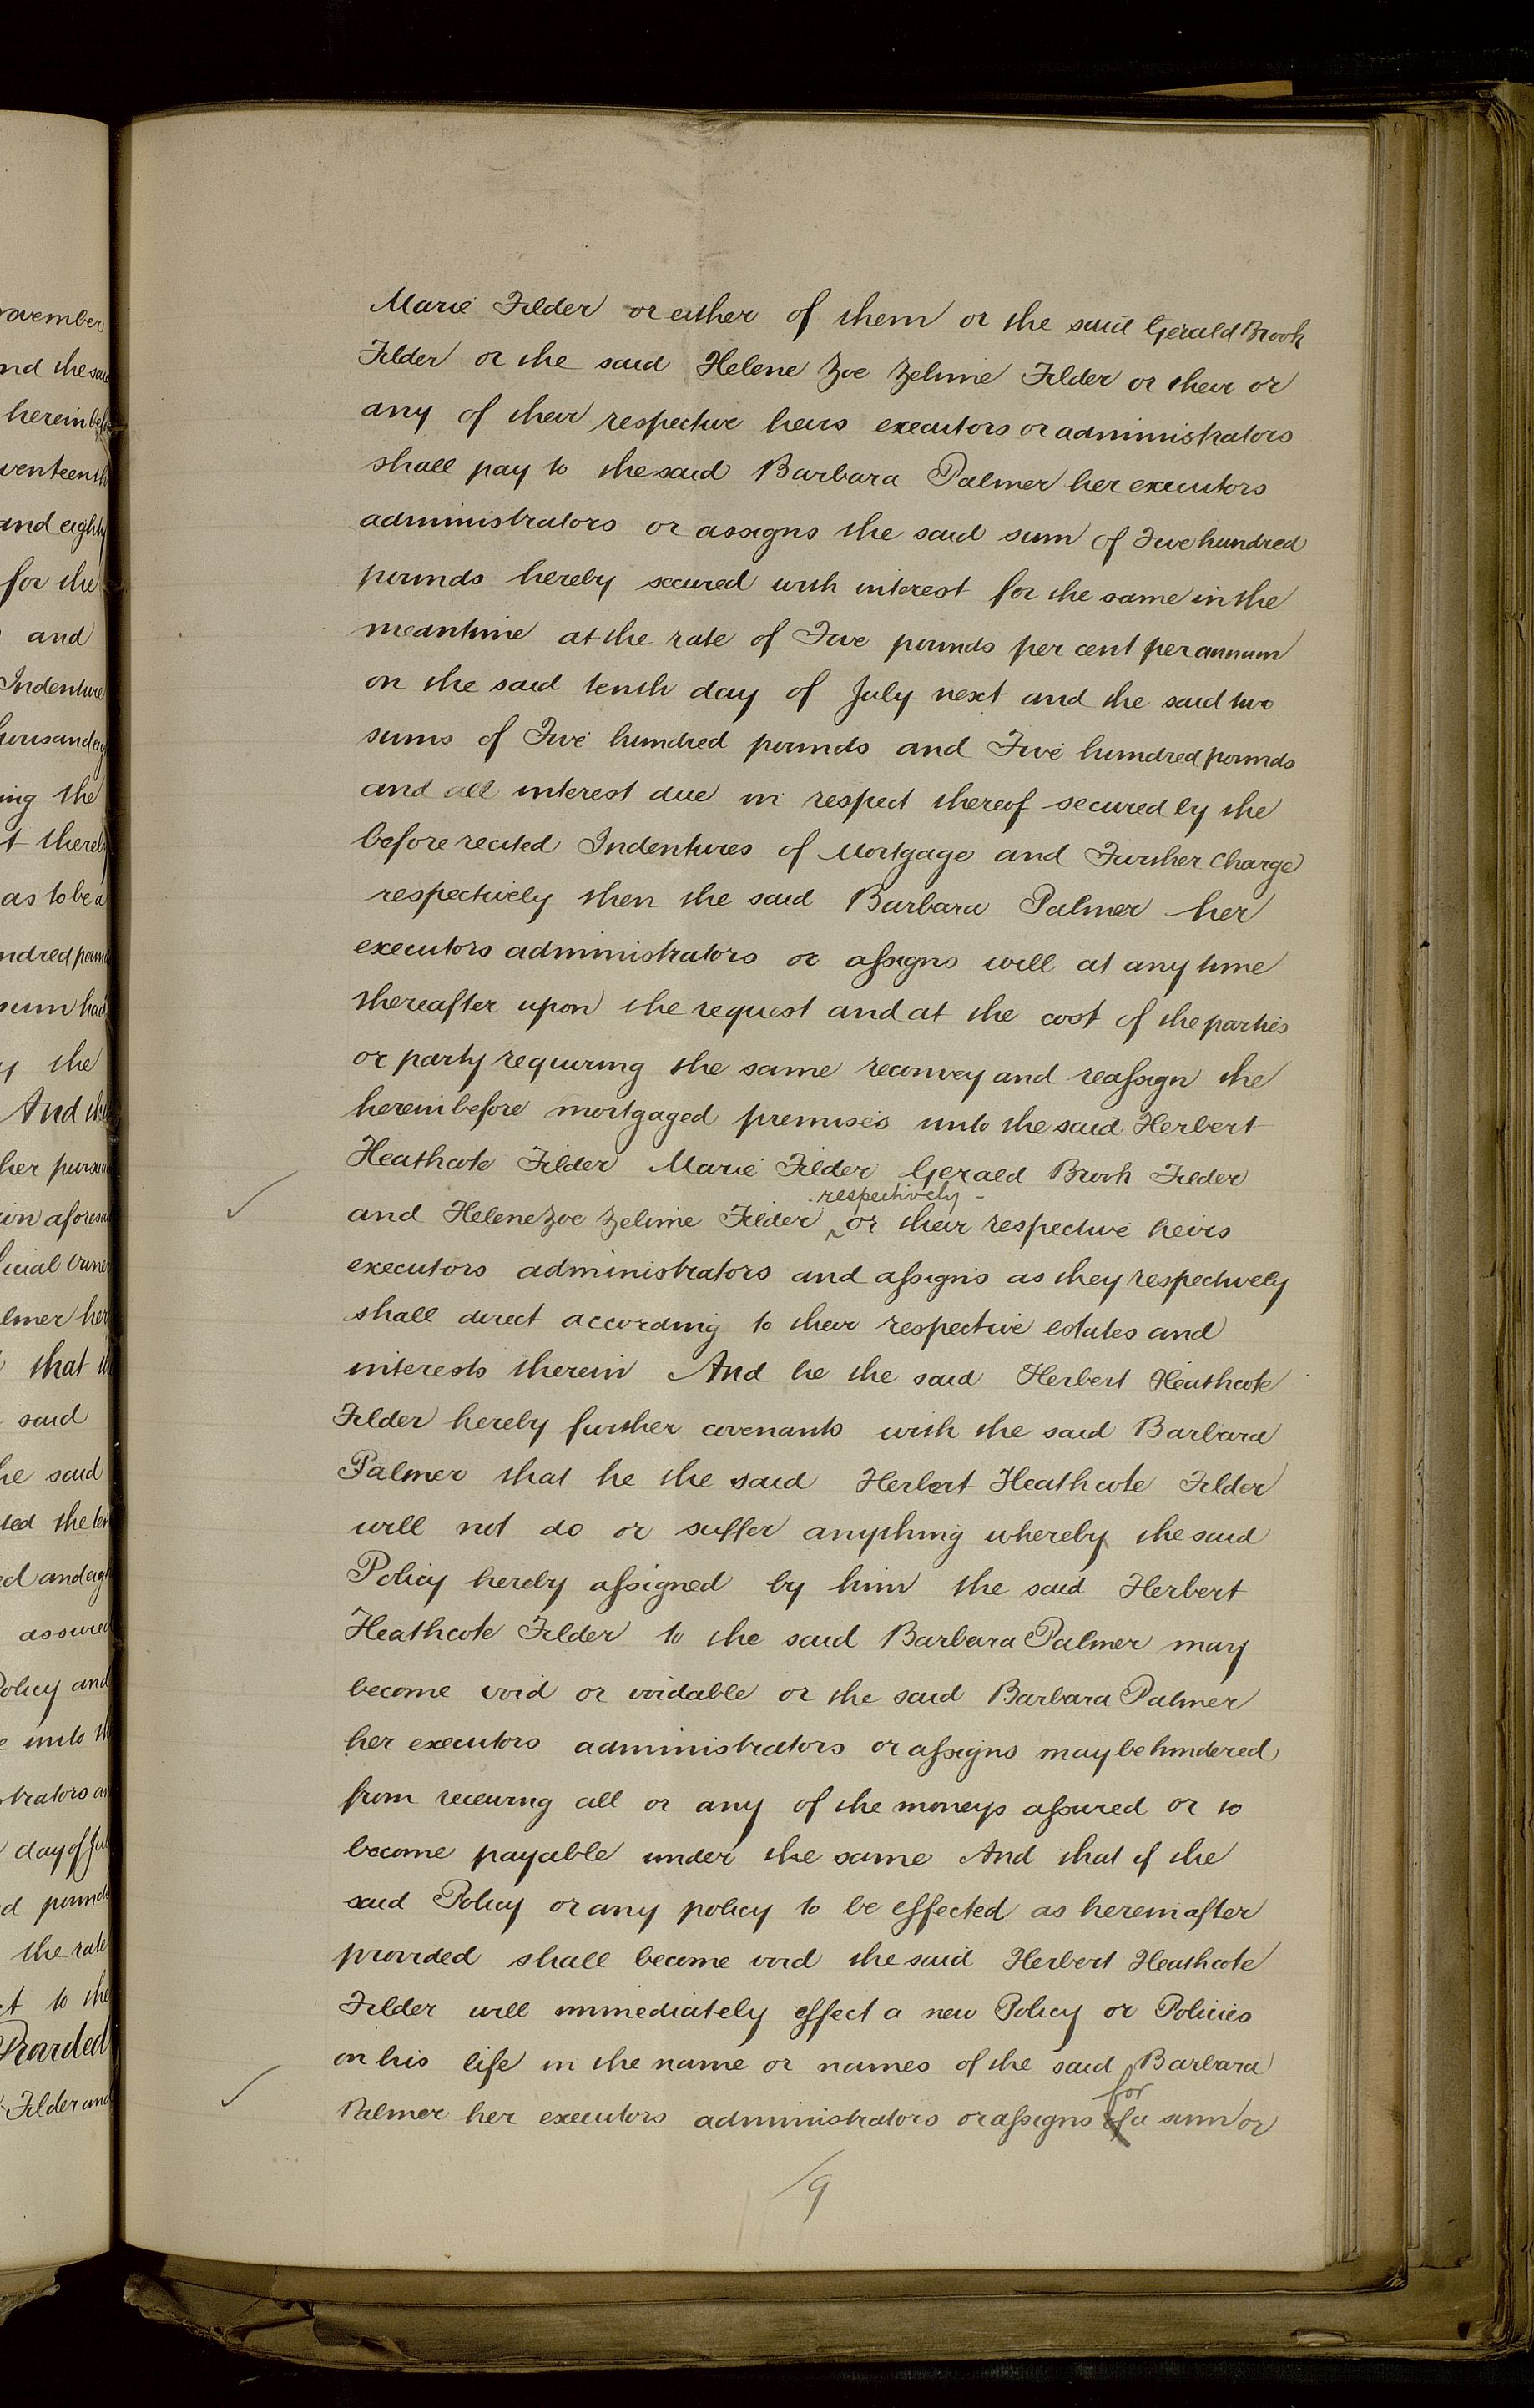 november
nd the said
herein befo
venteenth
and eighty
for the
and
Indenture
housand eig
ing the
t thereb
as to be a
ndred poun
sum had
y the
And the
her pursu
ion aforesa
ficial owner
lmer her
that th
said
he said
ted the ten
ed and eigh
assured
Policy and
e unto th
strators an
day of Jul
d pounds
the rate
t to the
Provided
Filder and
Marie Filder or either of them or the said Gerald Brook
Filder or the said Helene Zoe Zelime Filder or their or
any of their respective heirs executors or administrators
shall pay to the said Barbara Palmer her executors
administrators or assigns the said sum of Five hundred
pounds hereby secured with interest for the same in the
meantime at the rate of Five pounds per cent per annum
on the said tenth day of July next and the said two
sums of Five hundred pounds and Five hundred pounds
and all interest due in respect thereof secured by the
before recited Indentures of Mortgage and Further Charge
respectively then the said Barbara Palmer her
executors administrators or assigns will at any time
thereafter upon the request and at the cost of the parties
or party requiring the same reconvey and reassign the
hereinbefore mortgaged premises unto the said Herbert
Heathcote Filder Marie Filder Gerald Brook Filder
respectively
and Helene Zoe Zelime Filder or their respective heirs
executors administrators and assigns as they respectively
shall direct according to their respective estates and
interests therein And he the said Herbert Heathcote
Filder hereby further covenants with the said Barbara
Palmer that he the said Herbert Heathcote Filder
will not do or suffer anything whereby the said
Policy hereby assigned by him the said Herbert
Heathcote Filder to the said Barbara Palmer may
become void or voidable or the said Barbara Palmer
her executors administrators or assigns may be hindered
from receiving all or any of the moneys assured or to
become payable under the same And that if the
said Policy or any policy to be effected as hereinafter
provided shall become void the said Herbert Heathcote
Filder will immediately effect a new Policy or Policies
on his life in the name or names of the said Barbara
for
Palmer her executors administrators or assigns of a sum or
9